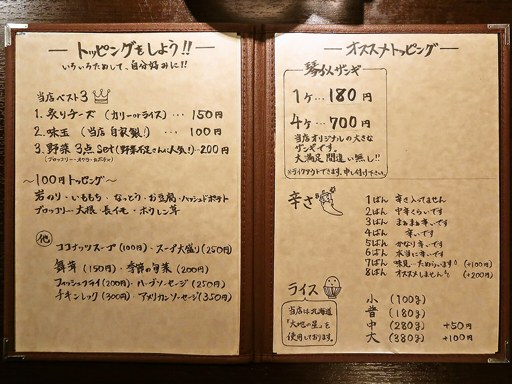 トッピングをしよう!!
いろいろためして、自分好みに!!
当店ベスト3
1.炙りチーズ (カリーorライス) … 150円
2.味玉 (当店自家製!) … 100円
3.野菜3点Set(野菜不足さんに人気!)…200円
(ブロッコリー・オクラ・
～100円トッピング～
岩のり・いももち・なっとう・お豆腐・ハッシュドポテト
ブロッコリー・大根・長イモ・ホワレン草
他
ココナッツスープ(100円)・スープ大盛り(250円)
舞茸(150円)・季節の旬菜(200円)
フィッシュフライ(200円)・ハーブソーセージ(250円)
チキンレッグ(300円)・アメリカンソーセージ(350円)
オススメトッピング
ザンギ
1ヶ…180円
4ヶ…700円
当店オリジナルの大きな
ザンギです。
大満足間違い無し!!
※テイクアウトできます、申し付け下さい。
辛さ
1ばん 辛さ入ってません
2ばん 中辛くらいです
3ばん まぁまぁ辛いです
4ばん 辛いです
5ばん かなり辛いです
6ばん 本当に辛いです
7ばん 味見…ためらいます (+100円)
8ばん オススメしません (+200円)
ライス
当店は北海道
「大地の星」を
使用しております。
小 (100g)
普 (180g)
中 (280g) +50円
大 (380g) +100円